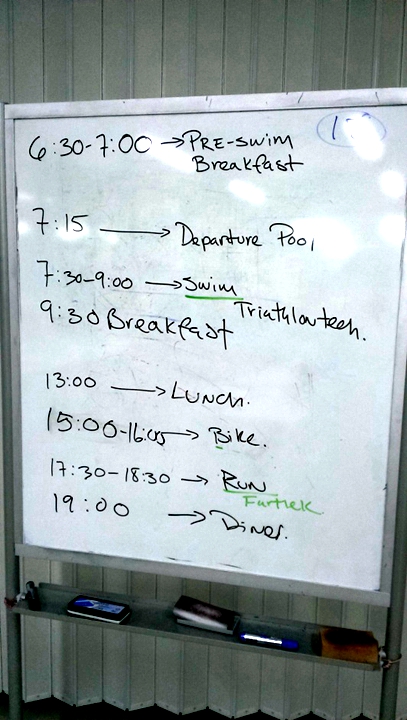 6:30-7:00 → PRE-swim
Breakfast
7:15 → Departure Pool
7:30-9:00 → Swim
Triathlontech.
9:30 Breakfast
13:00 → Lunch.
15:00-16:05 → Bike.
17:30-18:30 → RUN
Fartlek
19:00 → Diner.